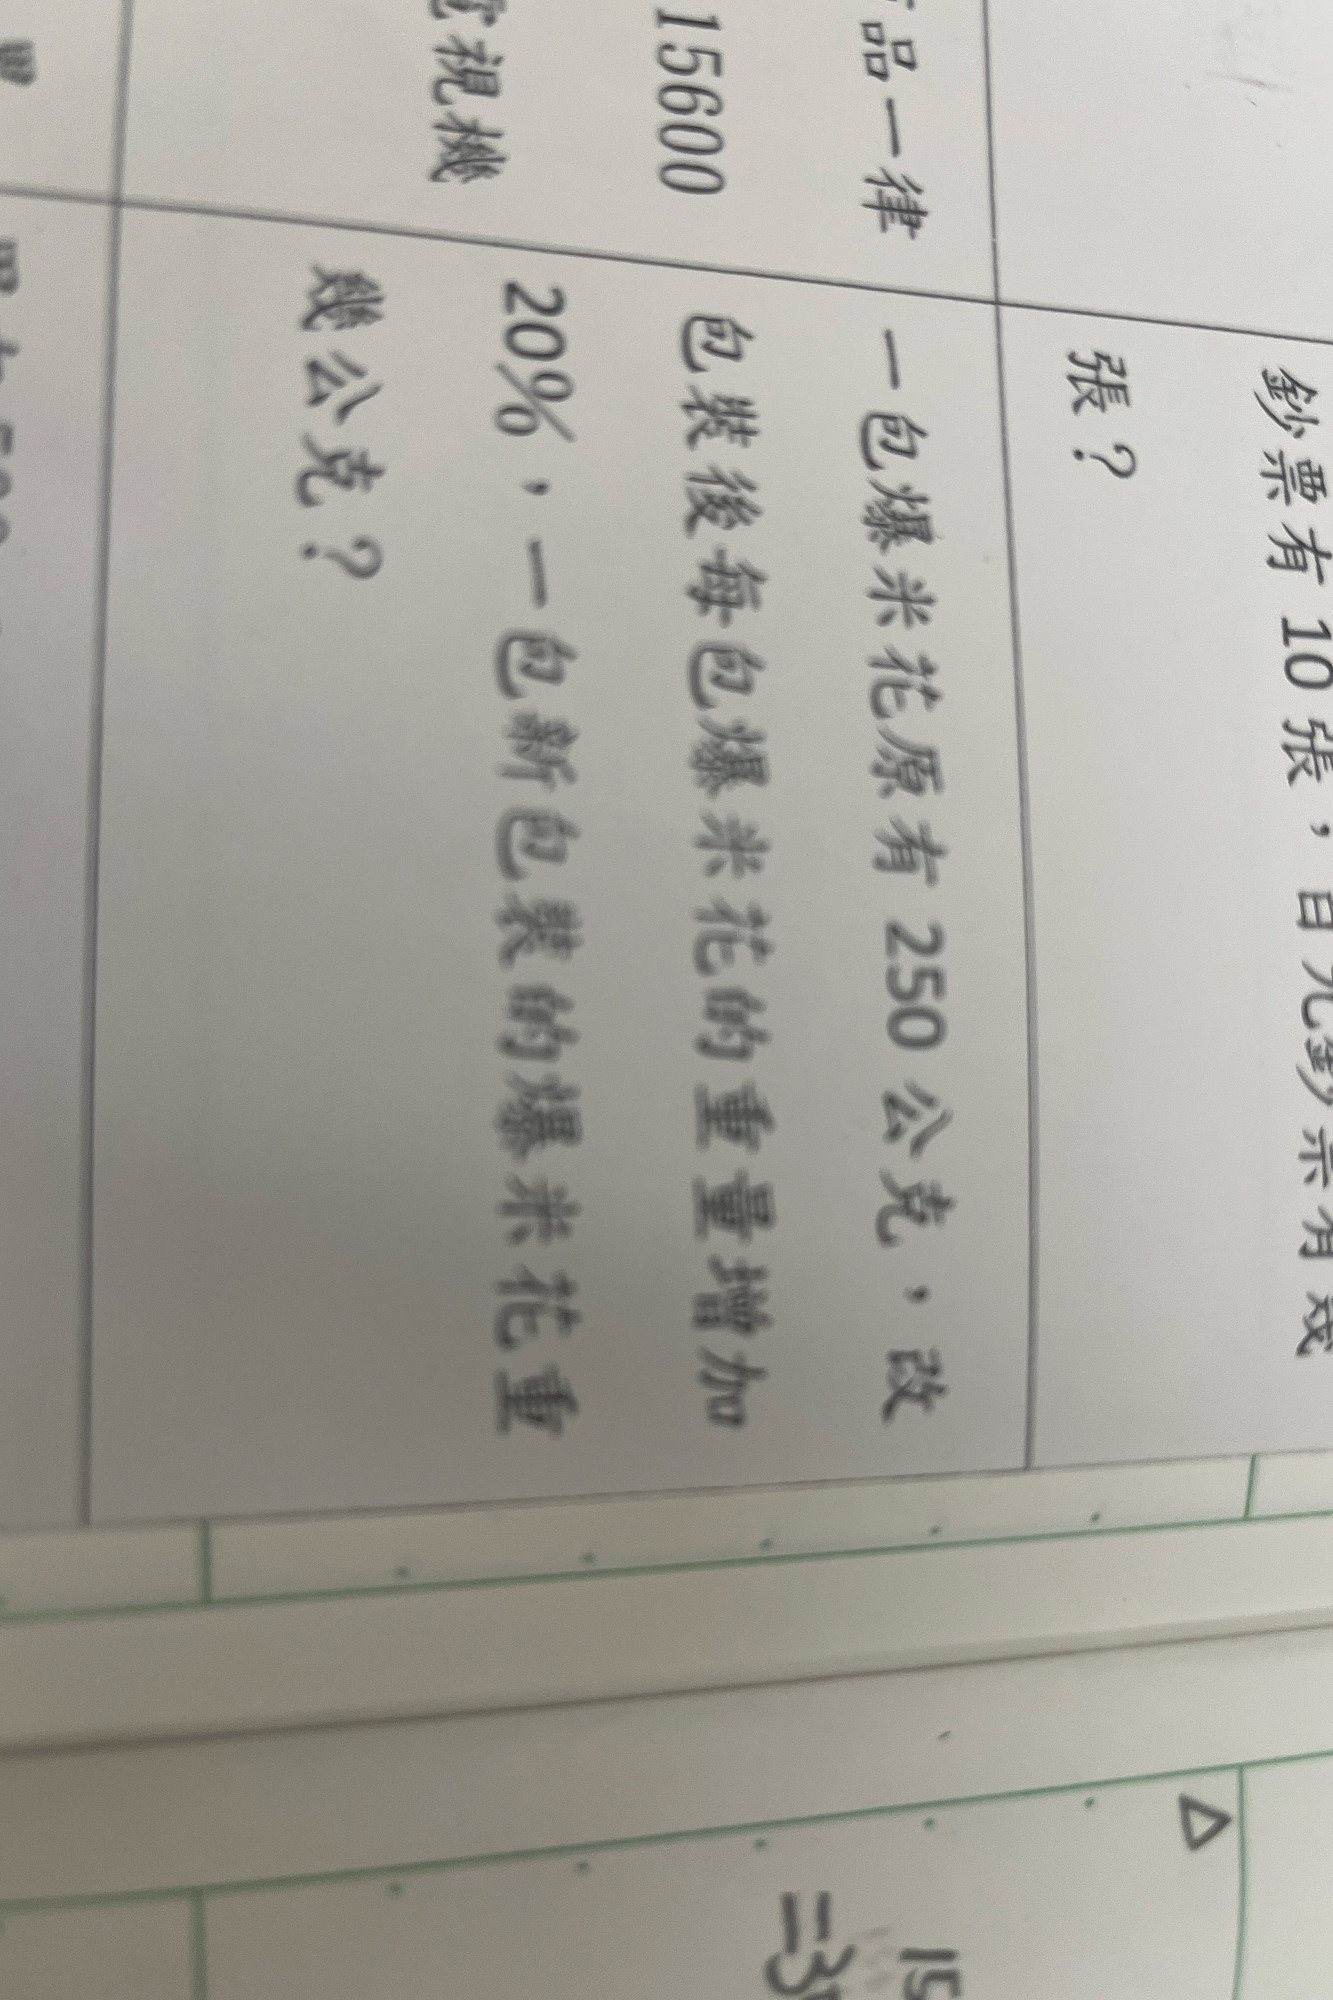 鈔票有 10 張，百元鈔票有幾
張？
品一律
15600
電視機
一包爆米花原有 250 公克，改
包裝後每包爆米花的重量增加
20%，一包新包裝的爆米花重
幾公克？
15
=3